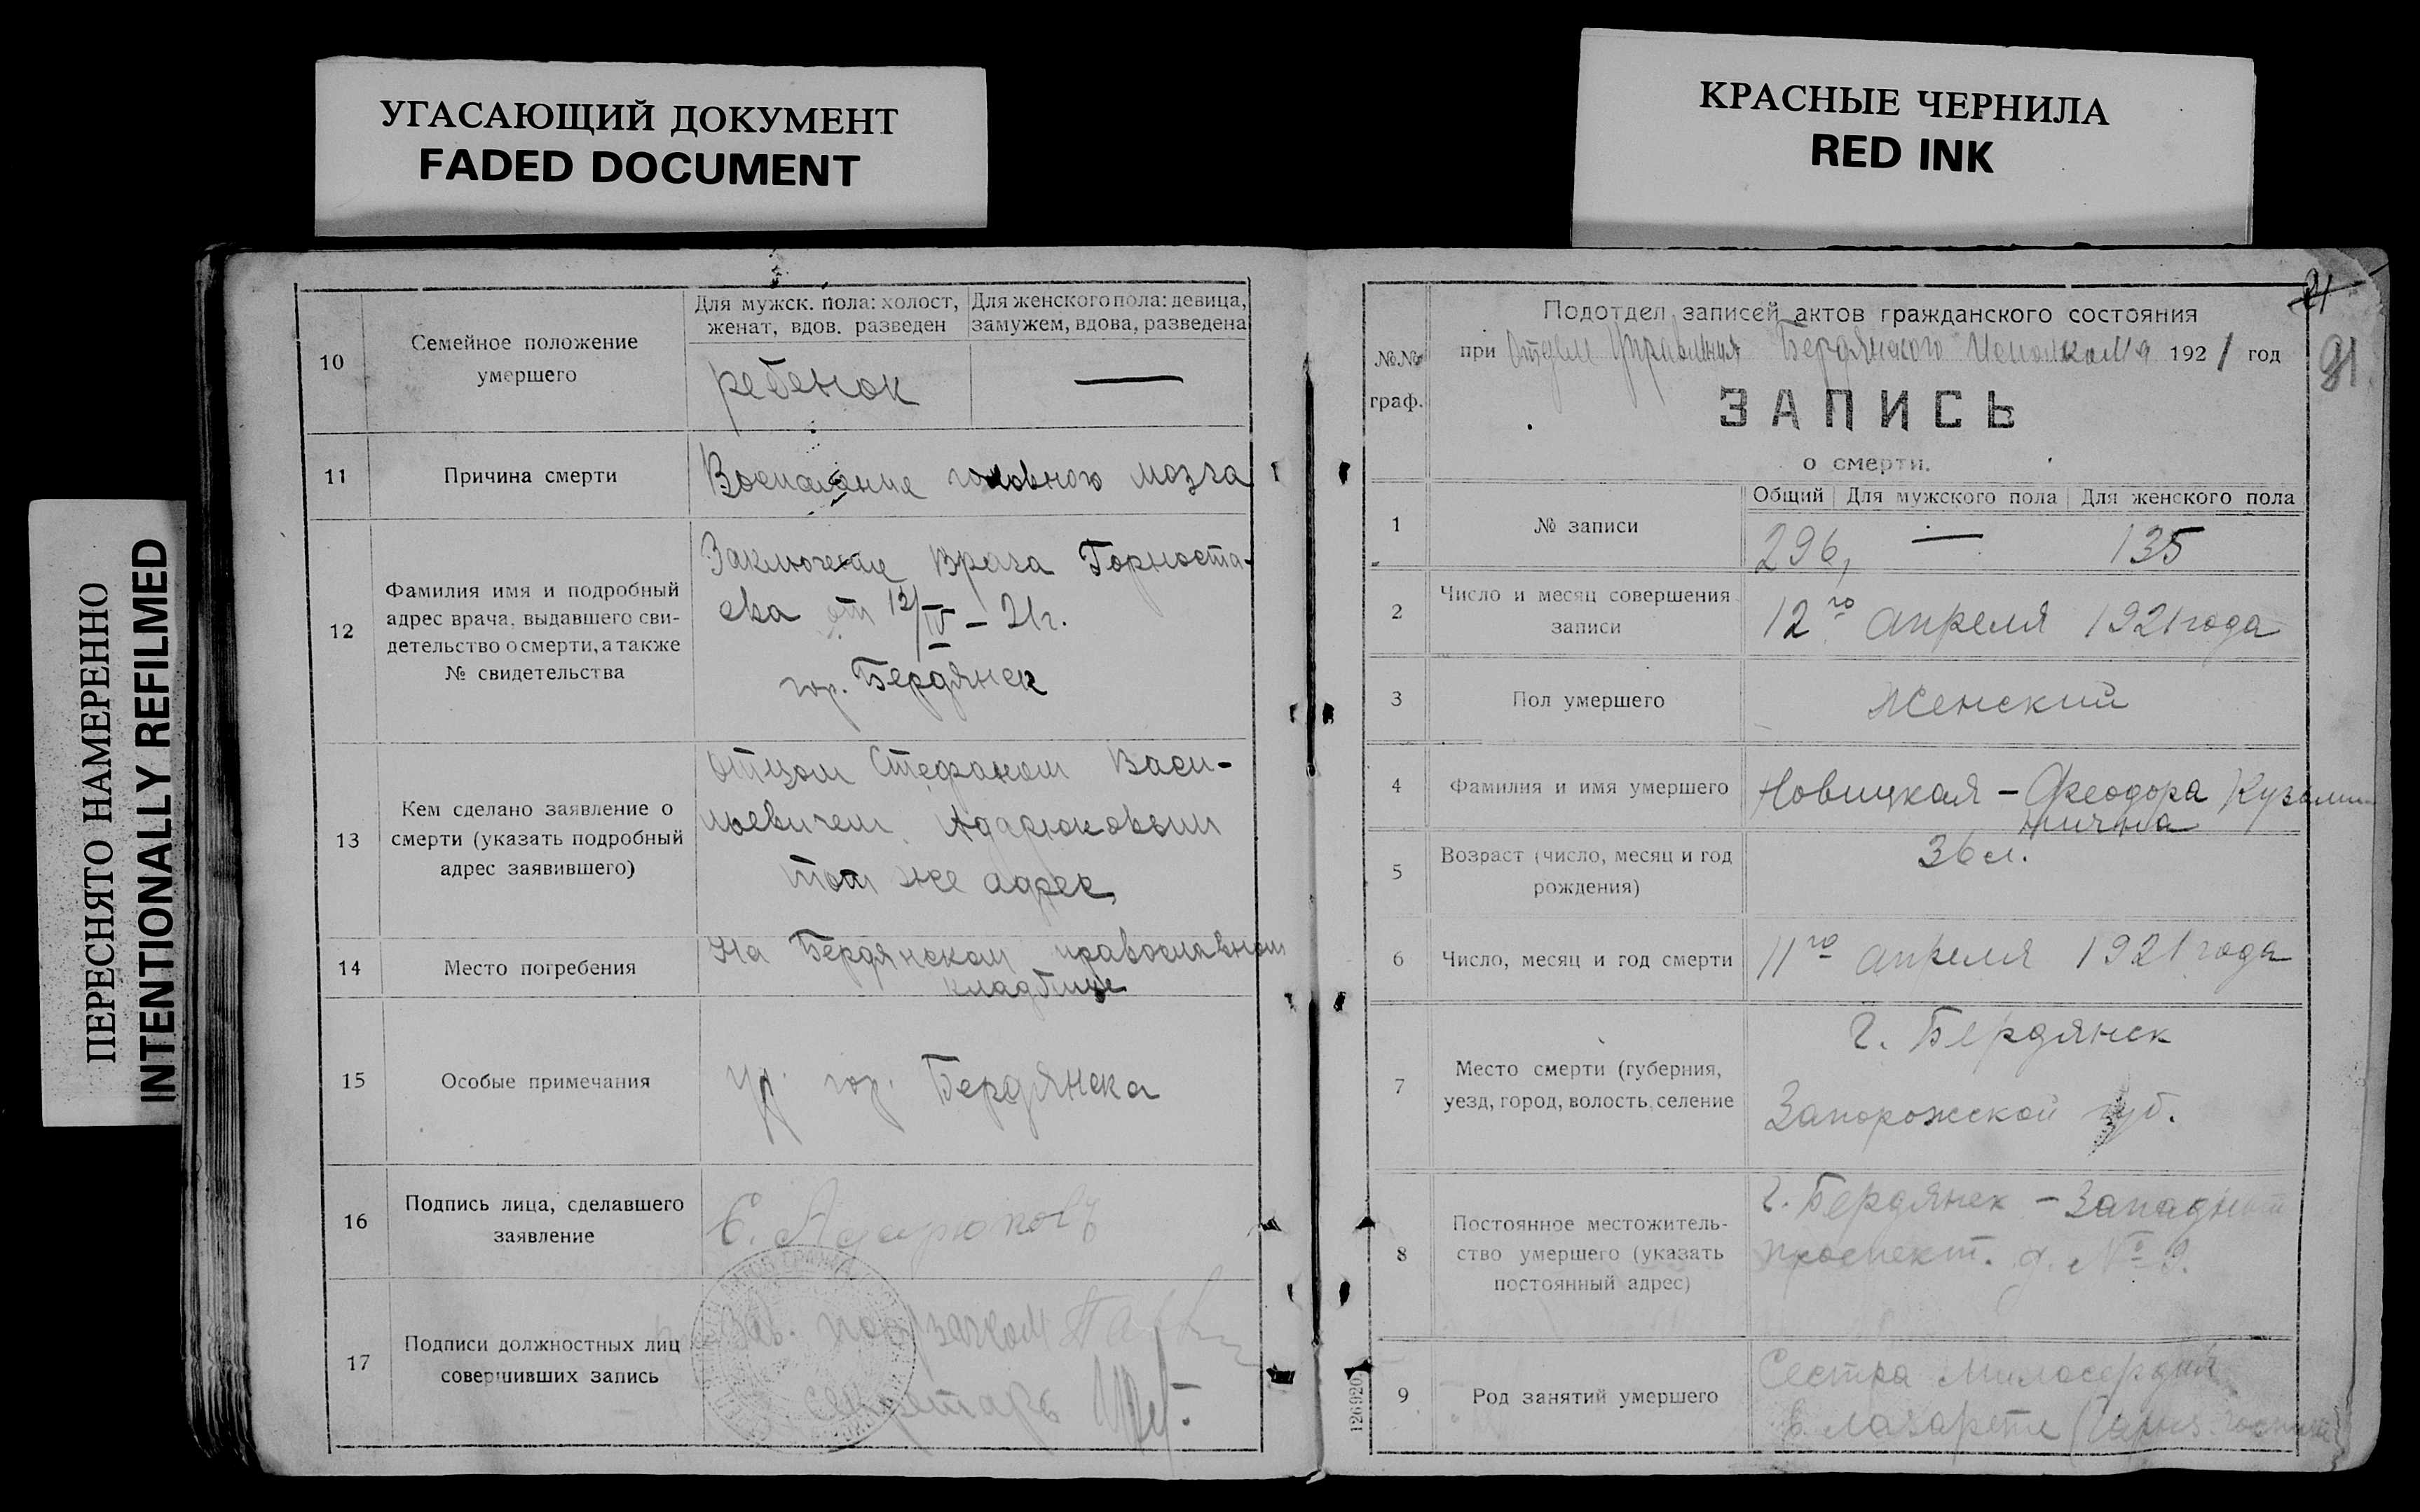 УГАСАЮЩИЙ ДОКУМЕНТ
FADED DOCUMENT
КРАСНЫЕ ЧЕРНИЛА
RED INK
ПЕРЕСНЯТО НАМЕРЕННО
INTENTIONALLY REFILMED
10
Семейное положение
умершего
Для мужск. пола: холост,
женат, вдов. разведен
Для женского пола: девица,
замужем, вдова, разведена
ребенок
—
11
Причина смерти
Воспаление головного мозга
12
Фамилия имя и подробный
адрес врача, выдавшего сви-
детельство о смерти, а также
№ свидетельства
Заключение Врача Горноста-
ева от 12/IV – 21г.
гор. Бердянск
13
Кем сделано заявление о
смерти (указать подробный
адрес заявившего)
отцом Стефаном Васи-
льевичем Адарюковым
тот же адрес
14
Место погребения
На Бердянском православном
кладбище
15
Особые примечания
гр. гор. Бердянска
16
Подпись лица, сделавшего
заявление
С. Адарюковъ
17
Подписи должностных лиц
совершивших запись
Зав. под
секретарь
91
91
№№
граф.
Подотдел записей актов гражданского состояния
при Отделе Управления Бердянского Исполкома 1921 год
ЗАПИСЬ
о смерти.
1
№ записи
Общий
Для мужского пола
Для женского пола
296,
—
135
2
Число и месяц совершения
записи
12го апреля 1921 года
3
Пол умершего
Женский
4
Фамилия и имя умершего
Новицкая – Феодора Кузьми
нична
5
Возраст (число, месяц и год
рождения)
36 л.
6
Число, месяц и год смерти
11го апреля 1921 года
7
Место смерти (губерния,
уезд, город, волость, селение
г. Бердянск
Запорожской губ.
8
Постоянное местожитель-
ство умершего (указать
постоянный адрес)
г. Бердянск – Западный
проспект. д. № 9.
9
Род занятий умершего
Сестра Милосердия
в лазарете
126920